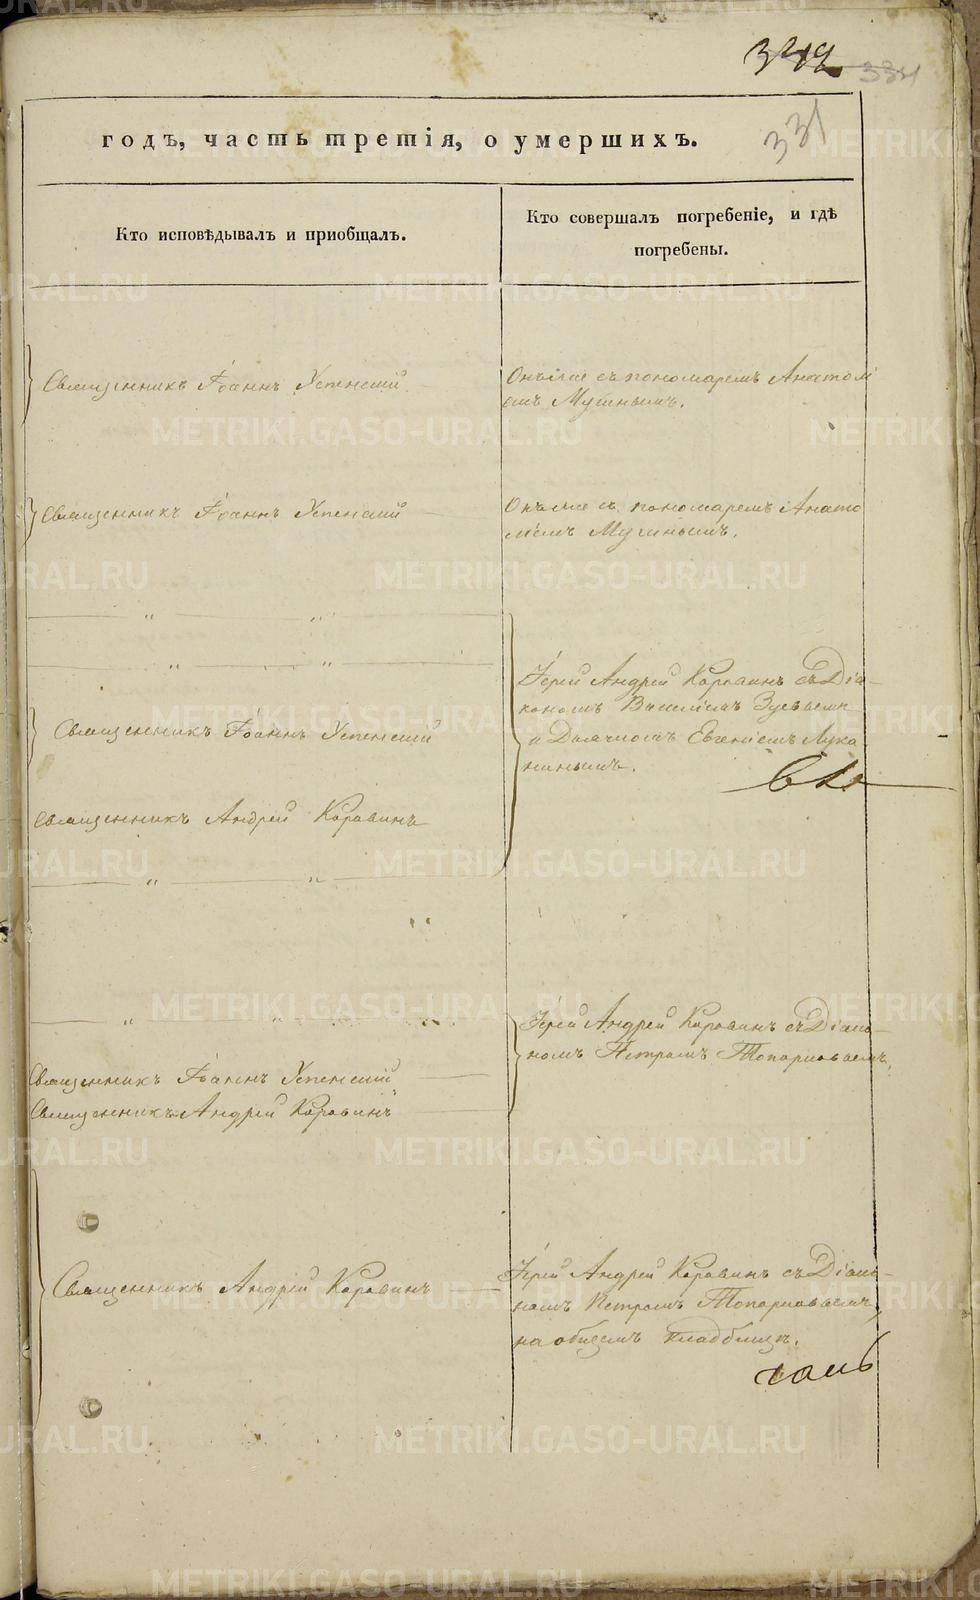 342 334
331
годъ, часть третія, о умершихъ.
Кто исповѣдывалъ и пріобщалъ.
Кто совершалъ погребеніе, и гдѣ
погребены.
Священникъ Іоаннъ Успенскій
съ пономаремъ Анатолі
емъ
Священникъ Іоаннъ Успенскій
съ пономаремъ Анато
ліемъ
Іерей Андрей Коровинъ съ Діа-
кономъ
Священникъ Іоаннъ Успенскій
и Дьячкомъ Евгеніемъ Лука
нинымъ.
Священникъ Андрей Коровинъ
Іерей Андрей Коровинъ съ Діако-
номъ Петромъ Топорковымъ,
Священникъ Іоаннъ Успенскій
Священникъ Андрей Коровинъ
Священникъ Андрей Коровинъ
Іерей Андрей Коровинъ съ Діако-
номъ Петромъ Топорковымъ,
на общемъ кладбищѣ.
METRIKI.GASO-URAL.RU